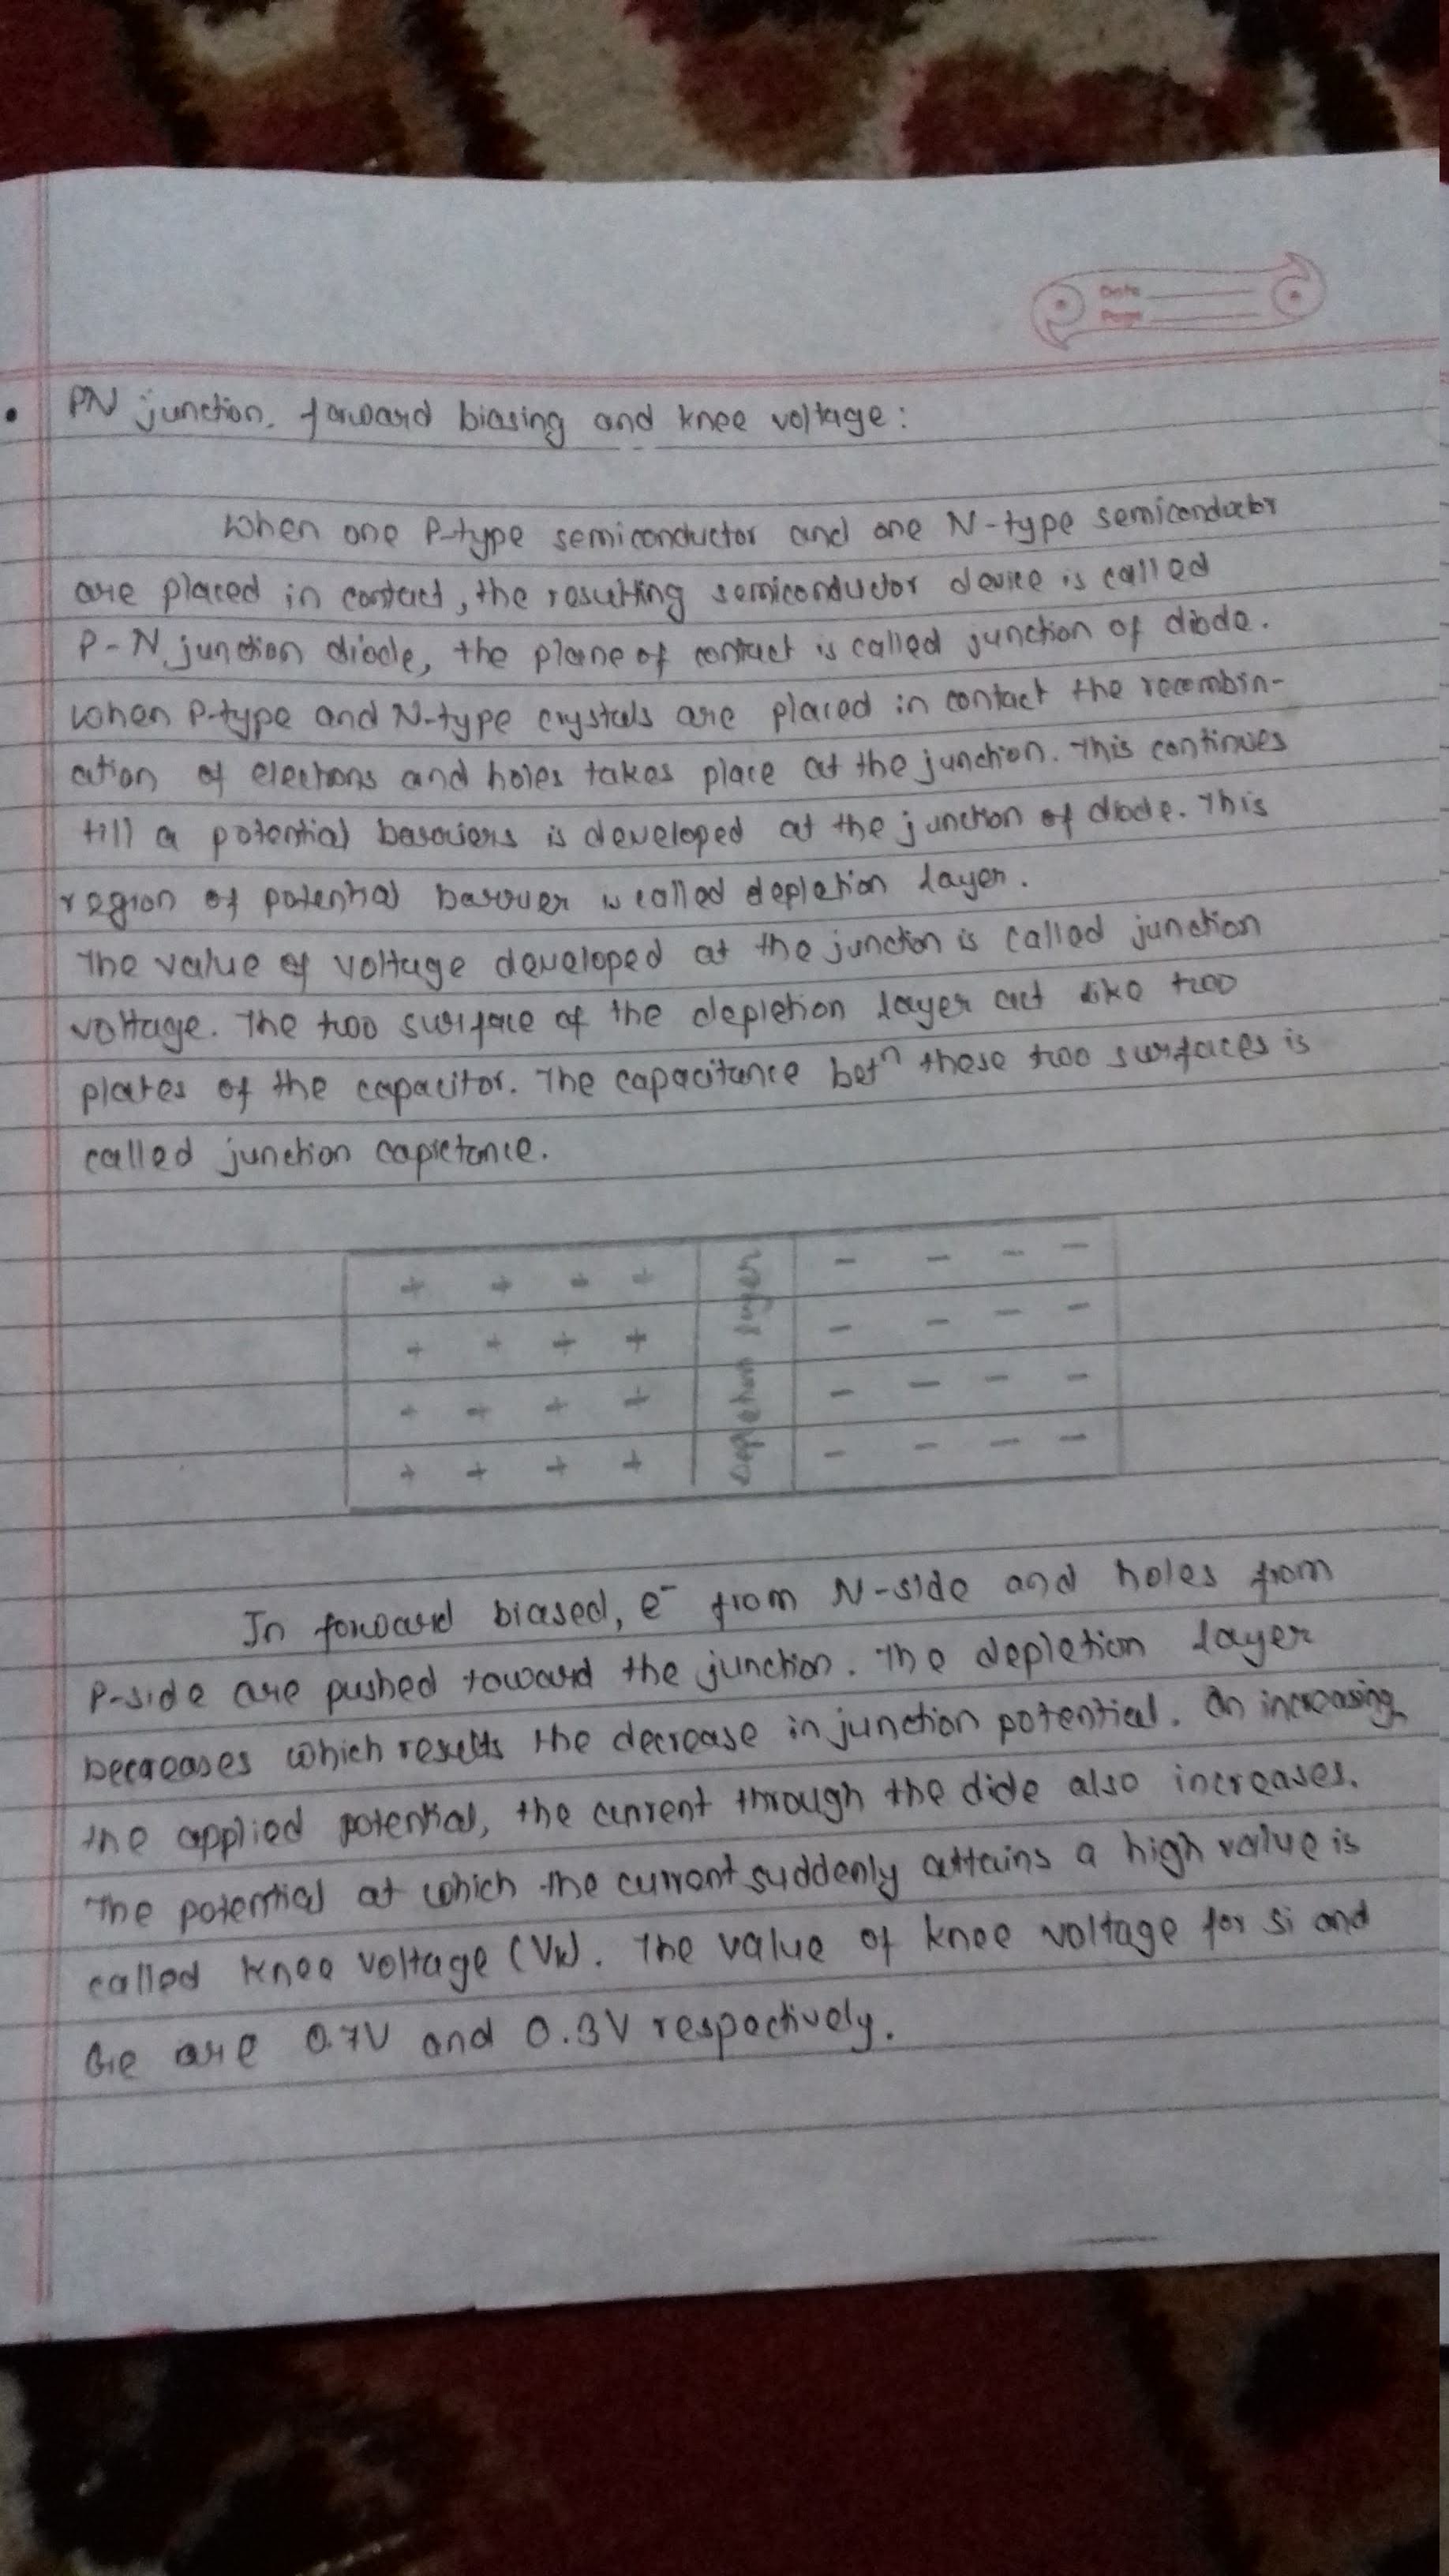 Date
Page
• PN junction, forward biasing and knee voltage:
When one P-type semiconductor and one N-type semiconductor
are placed in contact, the resulting semiconductor device is called
P-N junction diode, the plane of contact is called junction of diode.
when P-type and N-type crystals are placed in contact the recombin-
ation of electrons and holes takes place at the junction. This continues
till a potential barriers is developed at the junction of diode. This
region of potential barrier is called depletion layer.
The value of voltage developed at the junction is called junction
voltage. The two surface of the depletion layer act like two
plates of the capacitor. The capacitance betⁿ these two surfaces is
called junction capictance.
+ + + + - - - -
+ + + + - - - -
+ + + + - - - -
+ + + + - - - -
Depletion layer
In forward biased, e⁻ from N-side and holes from
P-side are pushed toward the junction. The depletion layer
Decreases which results the decrease in junction potential. On increasing
the applied potential, the current through the dide also increases.
The potential at which the current suddenly attains a high value is
called knee voltage (Vk). The value of knee voltage for Si and
Ge are 0.7V and 0.3V respectively.